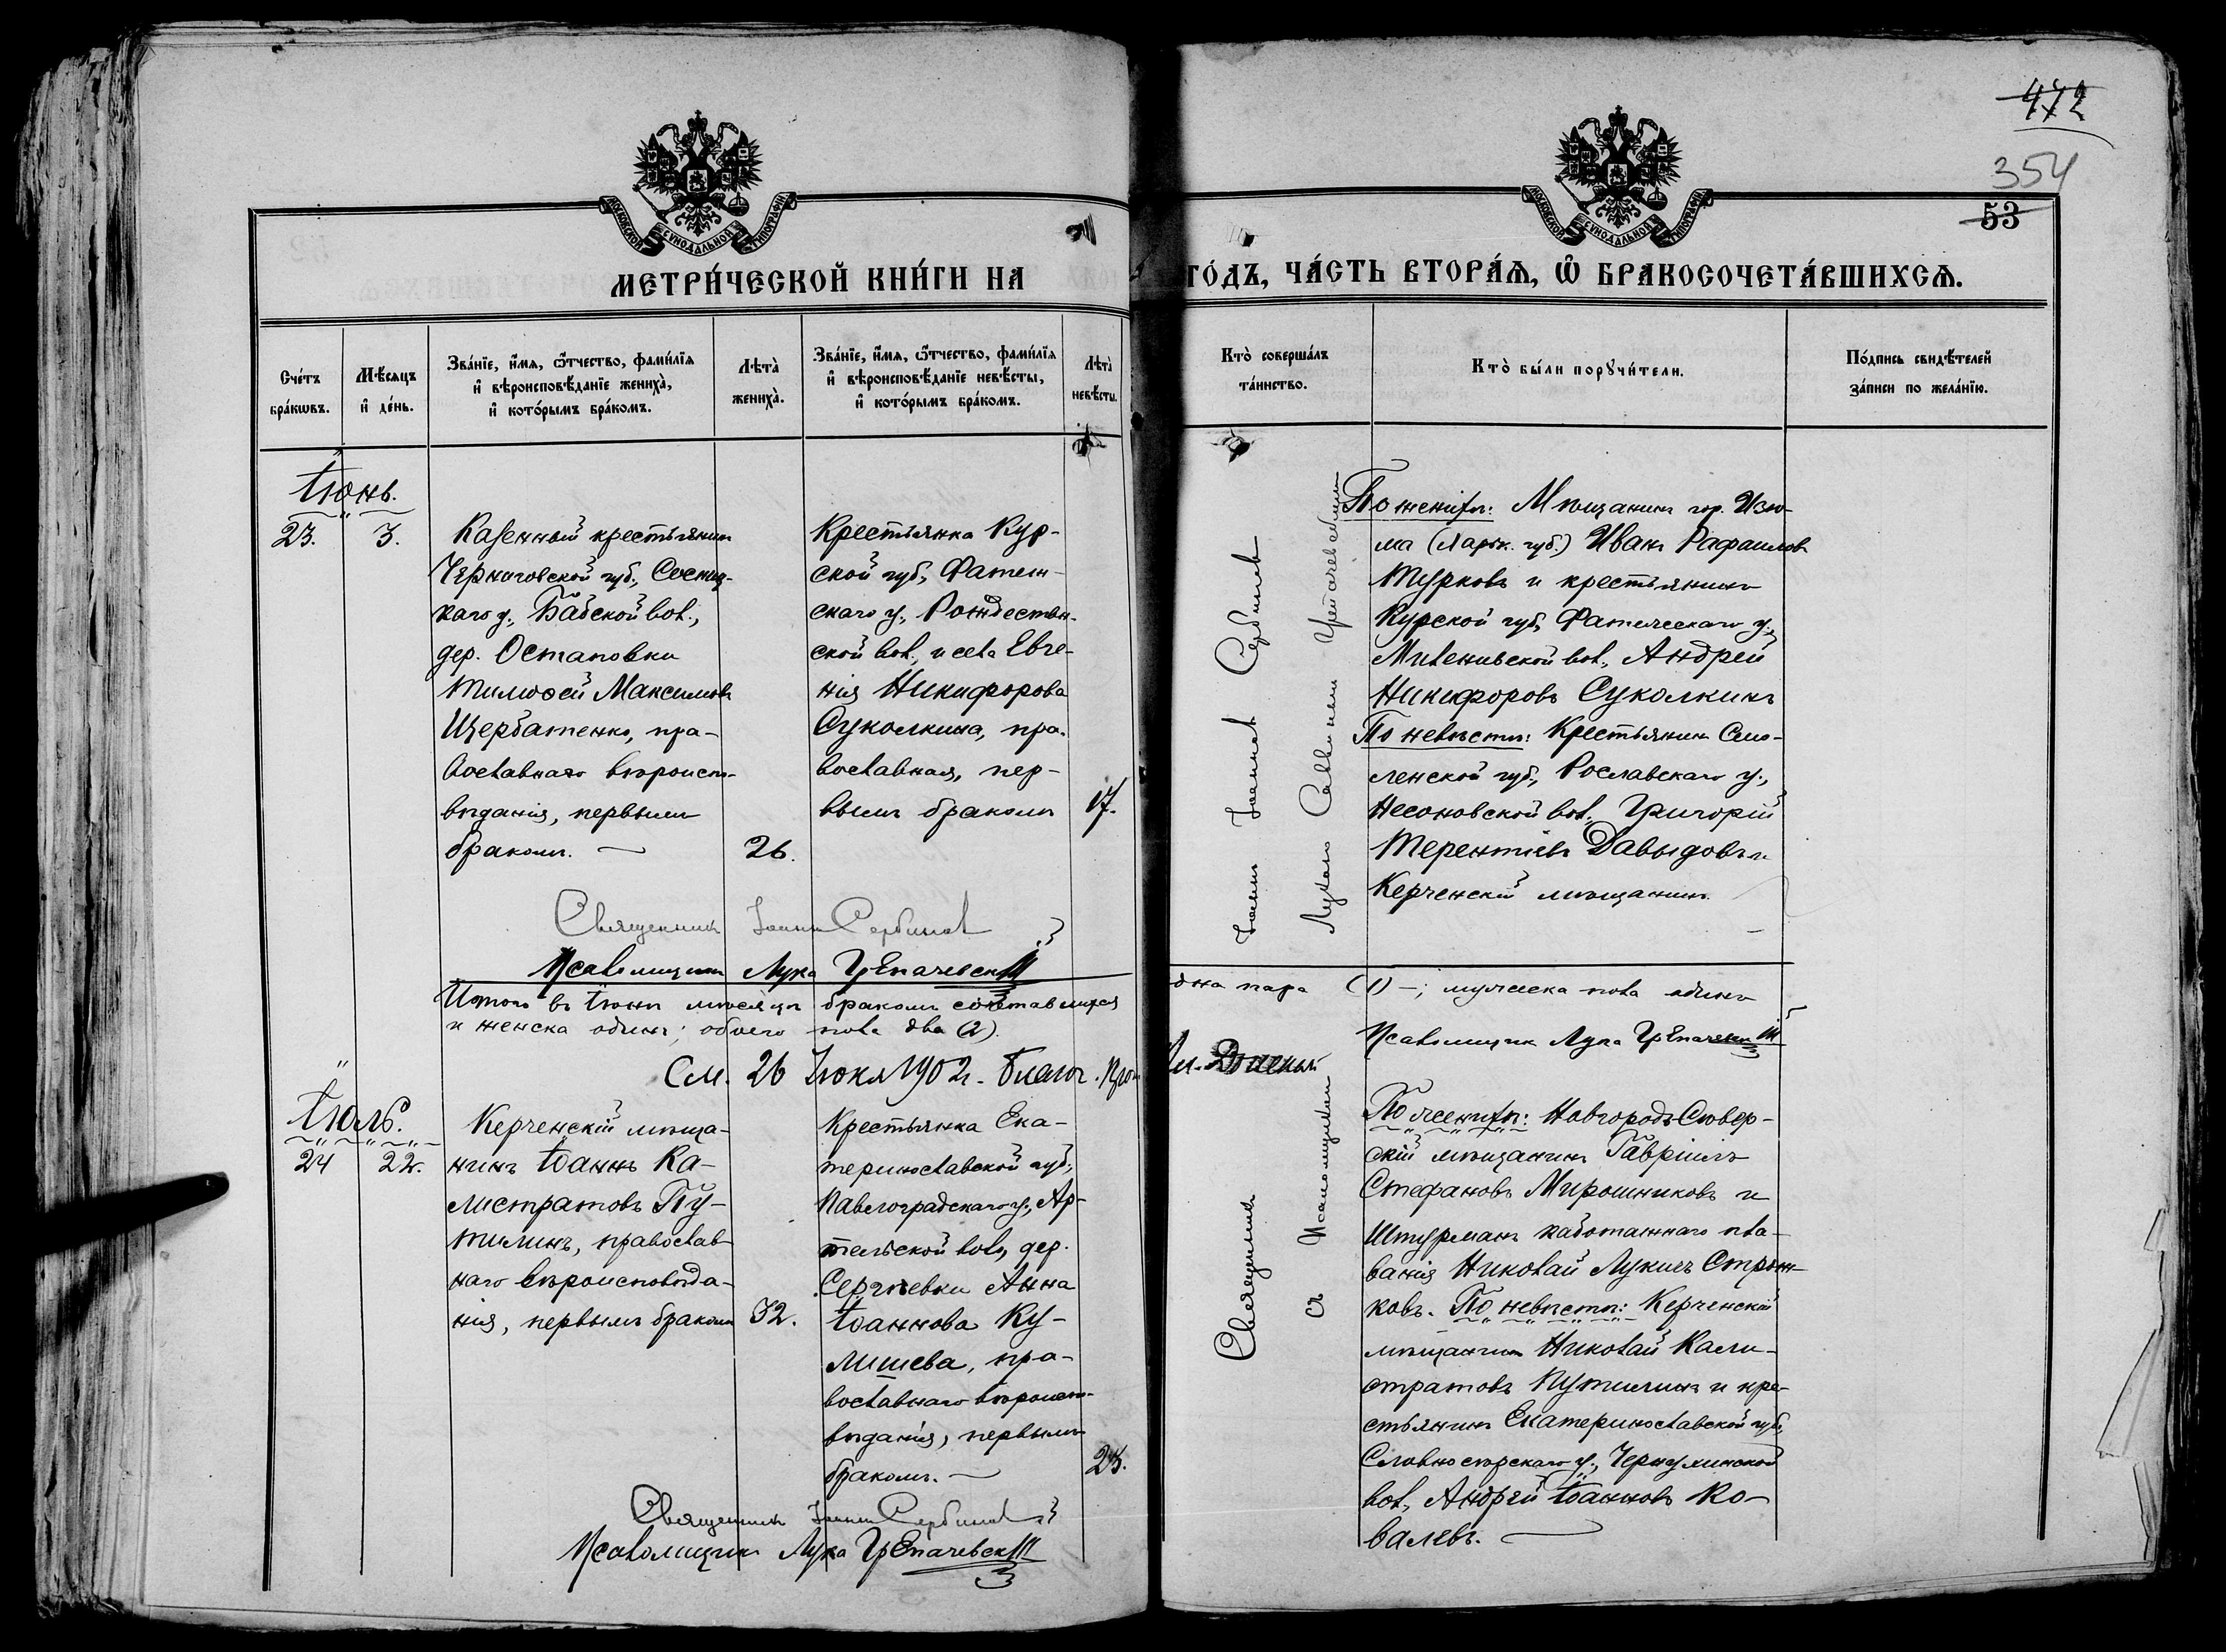 472
354
53
МОСКОВСКОЙ СѴНОДАЛЬНОЙ ТИПОГРАФІИ
МОСКОВСКОЙ СѴНОДАЛЬНОЙ ТИПОГРАФІИ
МЕТРИ́ЧЕСКОЙ КНИ́ГИ НА
ГО́ДЪ, ЧА́СТЬ ВТОРА́Ѧ, Ѽ БРАКОСОЧЕТА́ВШИХСѦ.
Сче́тъ
бра́кѡвъ.
Мѣ́сяцъ
и҆ де́нь.
Зва́нїе, и҆́мѧ, ѻ҆́тчество, фами́лїѧ
и҆ вѣроисповѣ́данїе жениха̀,
и҆ кото́рымъ бра́комъ.
Лѣта̀
жениха̀.
Зва́нїе, и҆́мѧ, ѻ҆́тчество, фами́лїѧ
и҆ вѣроисповѣ́данїе невѣ́сты,
и҆ кото́рымъ бра́комъ.
Лѣта̀
невѣ́сты.
Кто̀ соверша́лъ
та́инство.
Кто̀ бы́ли порꙋчи́тели.
По́дпись свидѣ́телей
за́писи по жела́нїю.
Іюнь.
23.
3.
Казенный крестьянинъ
Черниговской губ., Сосниц-
каго у., Бабской вол.,
дер. Остаповки
Тимоѳей Максимовъ
Щербатенко, пра-
вославнаго вѣроиспо-
вѣданія, первымъ
бракомъ.
26.
Крестьянка Кур-
ской губ., Фатеж-
скаго у., Рождествен-
ской вол. и села Евге-
нія Никифорова
Суколкина, пра-
вославная, пер-
вымъ бракомъ
17.
Іоаннъ Іоанновъ Сербиновъ
Лукою Саввинымъ
По женихѣ: Мѣщанинъ гор. Изю-
ма (Харьк. губ.) Иванъ Рафаиловъ
Турковъ и крестьянинъ
Курской губ. Фатежскаго у.,
Миленинской вол., Андрей
Никифоровъ Суколкинъ
По невѣстѣ: Крестьянин Смо-
ленской губ., Рославскаго у.,
Несоновской вол., Григорій
Терентіевъ Давыдовъ и
Керченскій мѣщанинъ
Священникъ Іоаннъ Сербиновъ
Псаломщикъ Лука Урепачевскій
Итого въ Іюнѣ мѣсяцѣ бракомъ сочетавшихся
одна пара (1) —; мужеска пола одинъ
и женска одинъ; обоего пола два (2).
Псаломщикъ Лука Урепачевскій
См. 26 Іюня 1902 г. Благоч. Прот.
Іюль.
24
22.
Керченскій мѣща-
нинъ Іоаннъ Ка-
листратовъ Пу-
тилинъ, православ-
наго вѣроисповѣда-
нія, первымъ бракомъ
32.
Крестьянка Ека-
теринославской губ.,
Павлоградскаго у., Ар-
тельской вол., дер.
Сергѣевки Анна
Іоаннова Ку-
лишева, пра-
вославнаго вѣроиспо-
вѣданія, первымъ
бракомъ.
23.
Священникъ
съ Псаломщикомъ
По женихѣ: Новгородъ-Сѣвер-
скій мѣщанинъ Гавріилъ
Стефановъ Мирошниковъ и
Штурманъ каботажнаго пла-
ванія Николай Лукичъ Строж-
ковъ. По невѣстѣ: Керченскій
мѣщанинъ Николай Кали-
стратовъ Путилинъ и кре-
стьянинъ Екатеринославской губ.,
Славяносербскаго у., Чернухинской
вол., Андрей Іоанновъ Ко-
валевъ.
Священникъ Іоаннъ Сербиновъ
Псаломщикъ Лука Урепачевскій